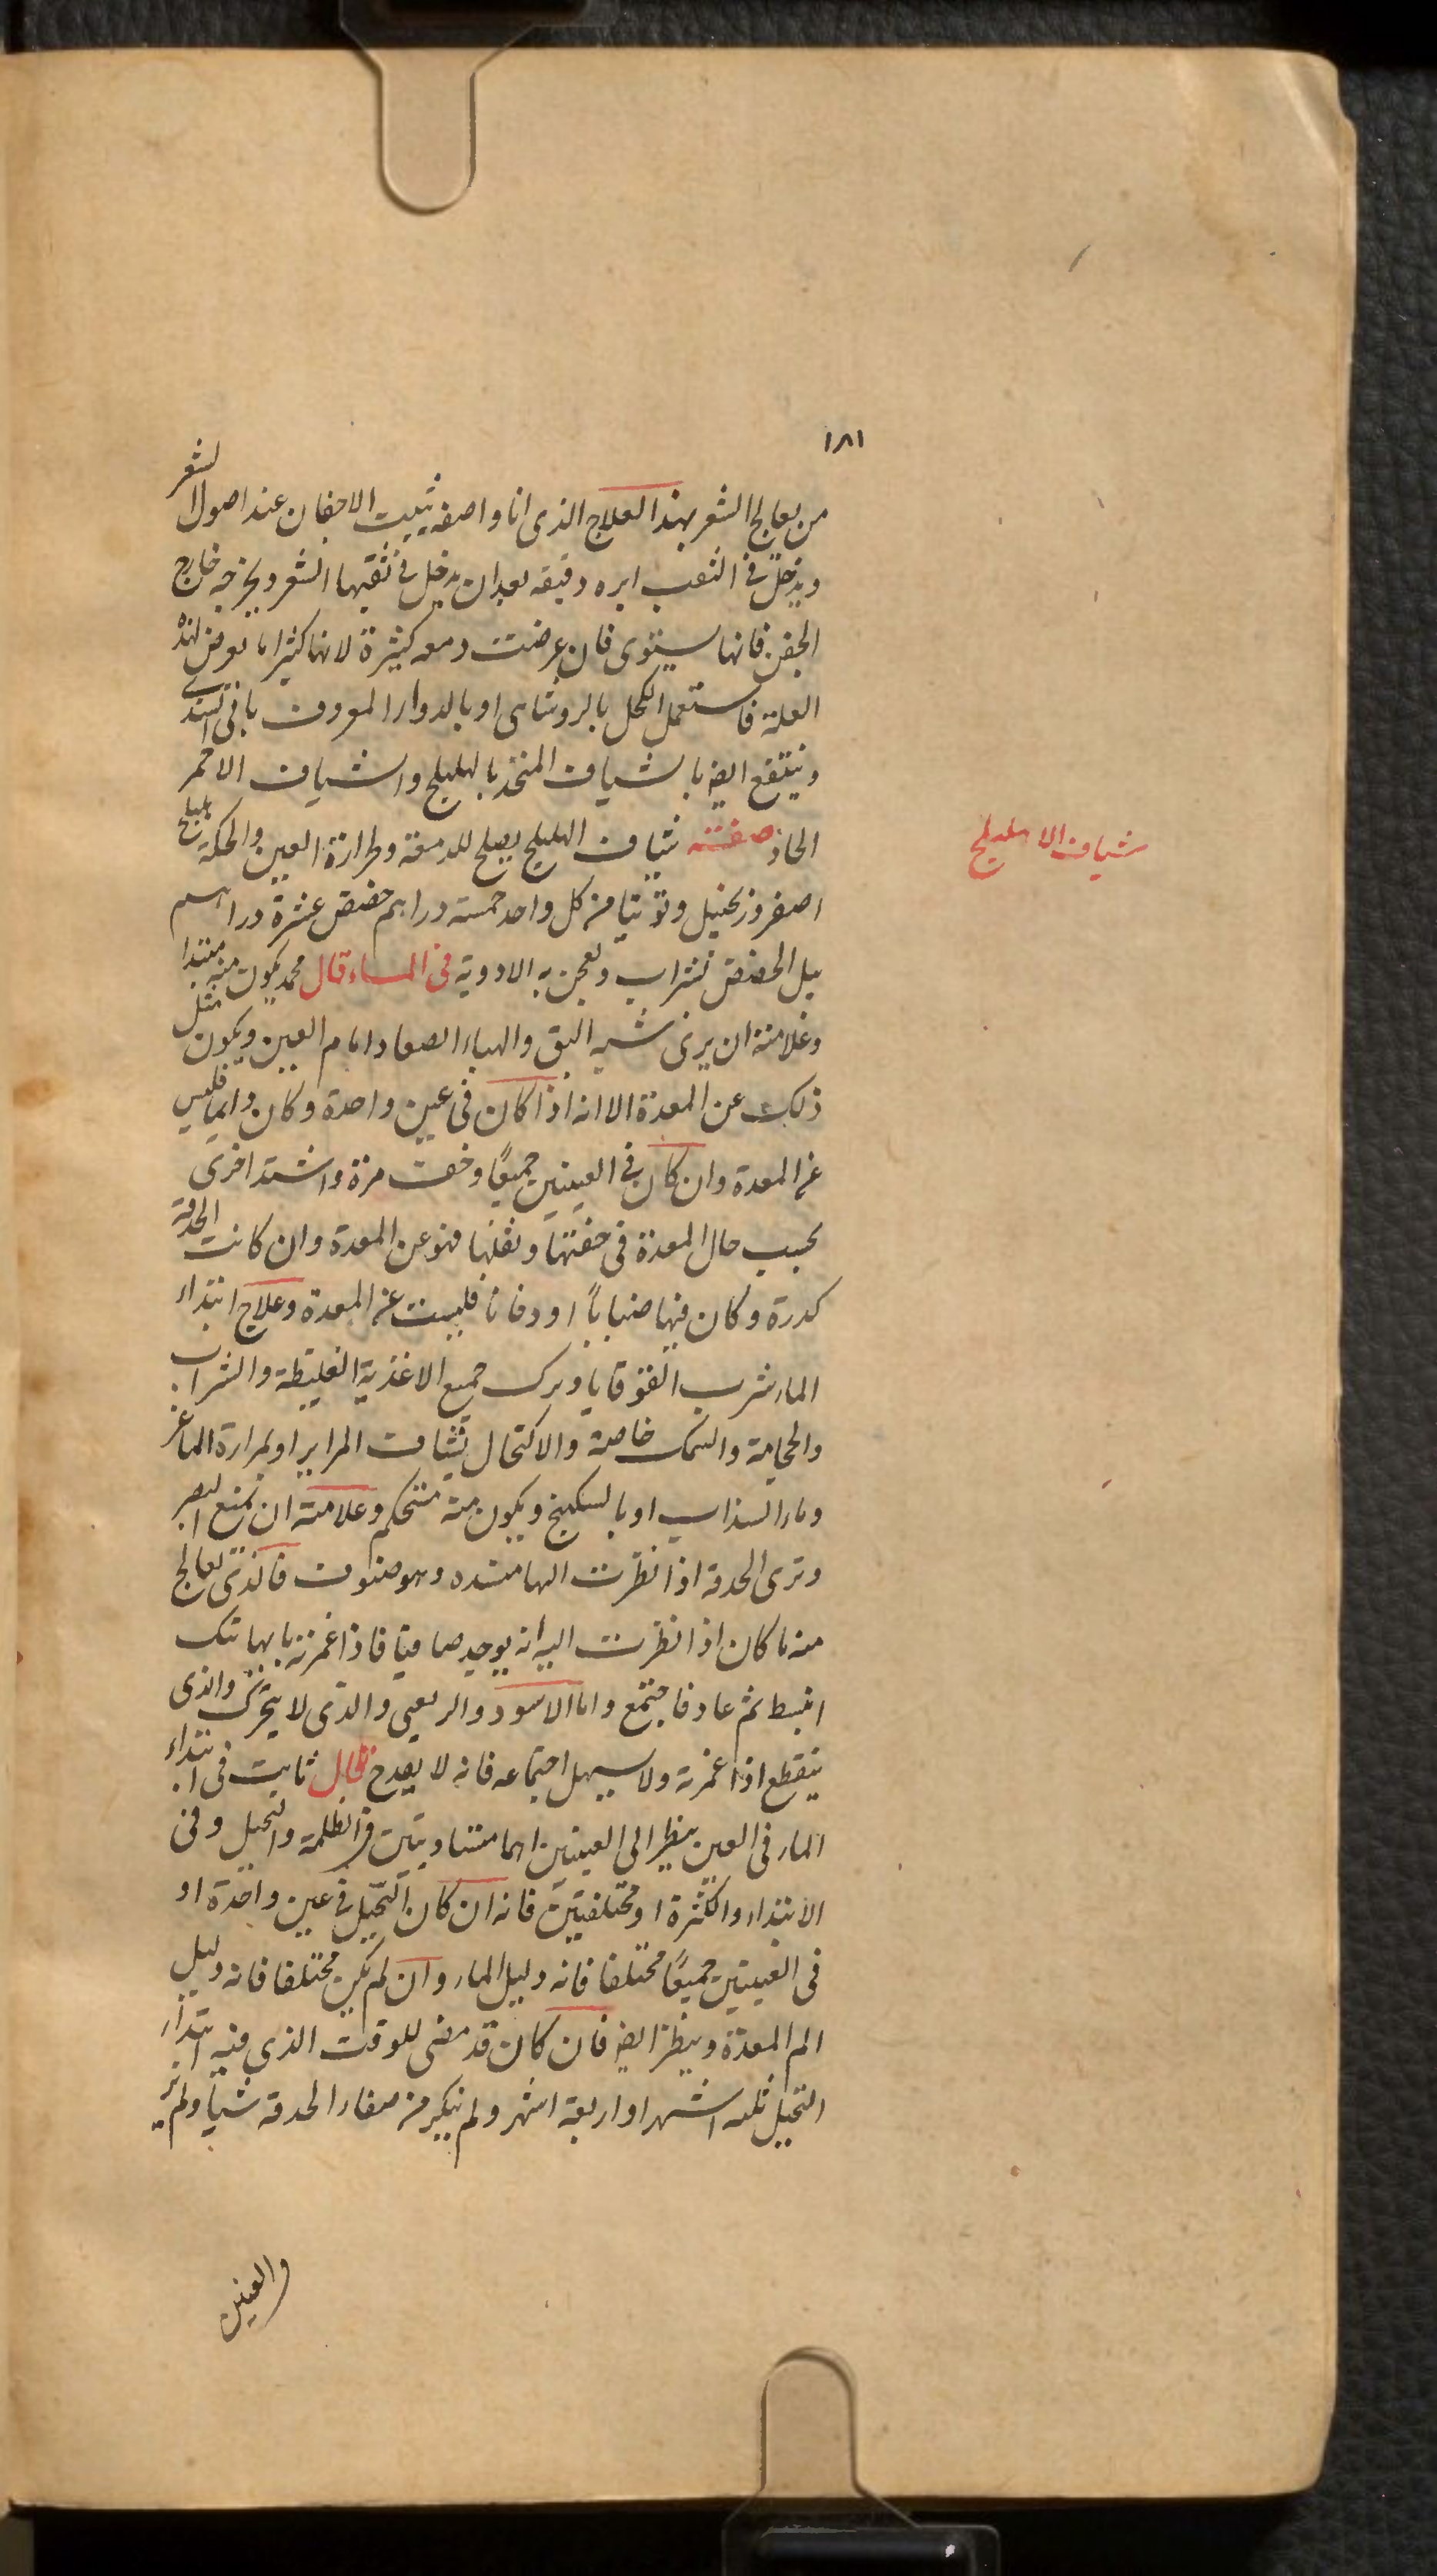 ١٨١
من يعالج الشعر بهذا العلاج الذى انا واصفه يثبت الاجفان عند اصول الشعر
ويدخل فى الثقب ابره دقيقه بعد ان يدخل فى ثقبها الشعر ويخرجه خارج
الجفن فانها يستوى فان عرضت دمعه كثيرة لانها كثيرا ما تعرض لهذه
العلة فاستعمل الكحل بالروشناى او بالدواء المعروف
وينتفع ايضا بالشياف المتخذ بالهليلج والشياف الاحمر
الحاد صفته شياف الهليلج يصلح للدمعة ولحرارة العين والحكة هليلج
اصفر وزنجبيل وتوتيا من كل واحد خمسة دراهم حضض عشرة دراهم
يبل الحضض بشراب ويعجن به الادوية فى الماء قال محمد يكون منه مبتدا
وعلامته ان يرى شبه البق والهباء الصغار امام العين ويكون مثل
ذلك عن المعدة الا انه اذا كان فى عين واحدة وكان دايما فليس
عن المعدة وان كان فى العينين جميعًا وخفت مرة واشتد اخرى
بحسب حال المعدة فى خفتها وثقلها فهو عن المعدة وان كانت الحدقة
كدرة وكان فيها ضبابًا او دخانا فليست عن المعدة وعلاج ابتداء
الماء شرب القوقايا وترك جميع الاغذية الغليظة والشراب
والحجامة والسمك خاصة والاكتحال بشياف المراير او بمرارة الماعز
وماء السذاب او بالسكبينج ويكون منه مستحكم وعلامته ان يمنع البصر
وترى الحدقة اذا نظرت اليها منسده وهو صنوف فالذى يعالج
منه ما كان اذا نظرت اليه انه يوجد صافيا فاذا غمزته بابهامك
انبسط ثم عاد فاجتمع واما الاسود والربعى والذى لا يتحرك والذى
ينقطع اذا غمزته ولا يسهل اجتماعه فانه لا يقدح قال ثابت فى ابتداء
الماء فى العين ينظر الى العينين اهما متساويتين فى الظلمة والتخيل وفى
الابتداء والكثرة او مختلفتين فانه ان كان التخيل فى عين واحدة او
فى العينين جميعًا مختلفا فانه دليل الماء وان لم يكن مختلفا فانه دليل
الم المعدة وينظر ايضا فان كان قد مضى للوقت الذى فيه ابتداء
التخيل ثلثه اشهر او اربعة اشهر ولم ينكر من صفاء الحدقة شيأ ولم تر
شياف الاهليلج
والعينين